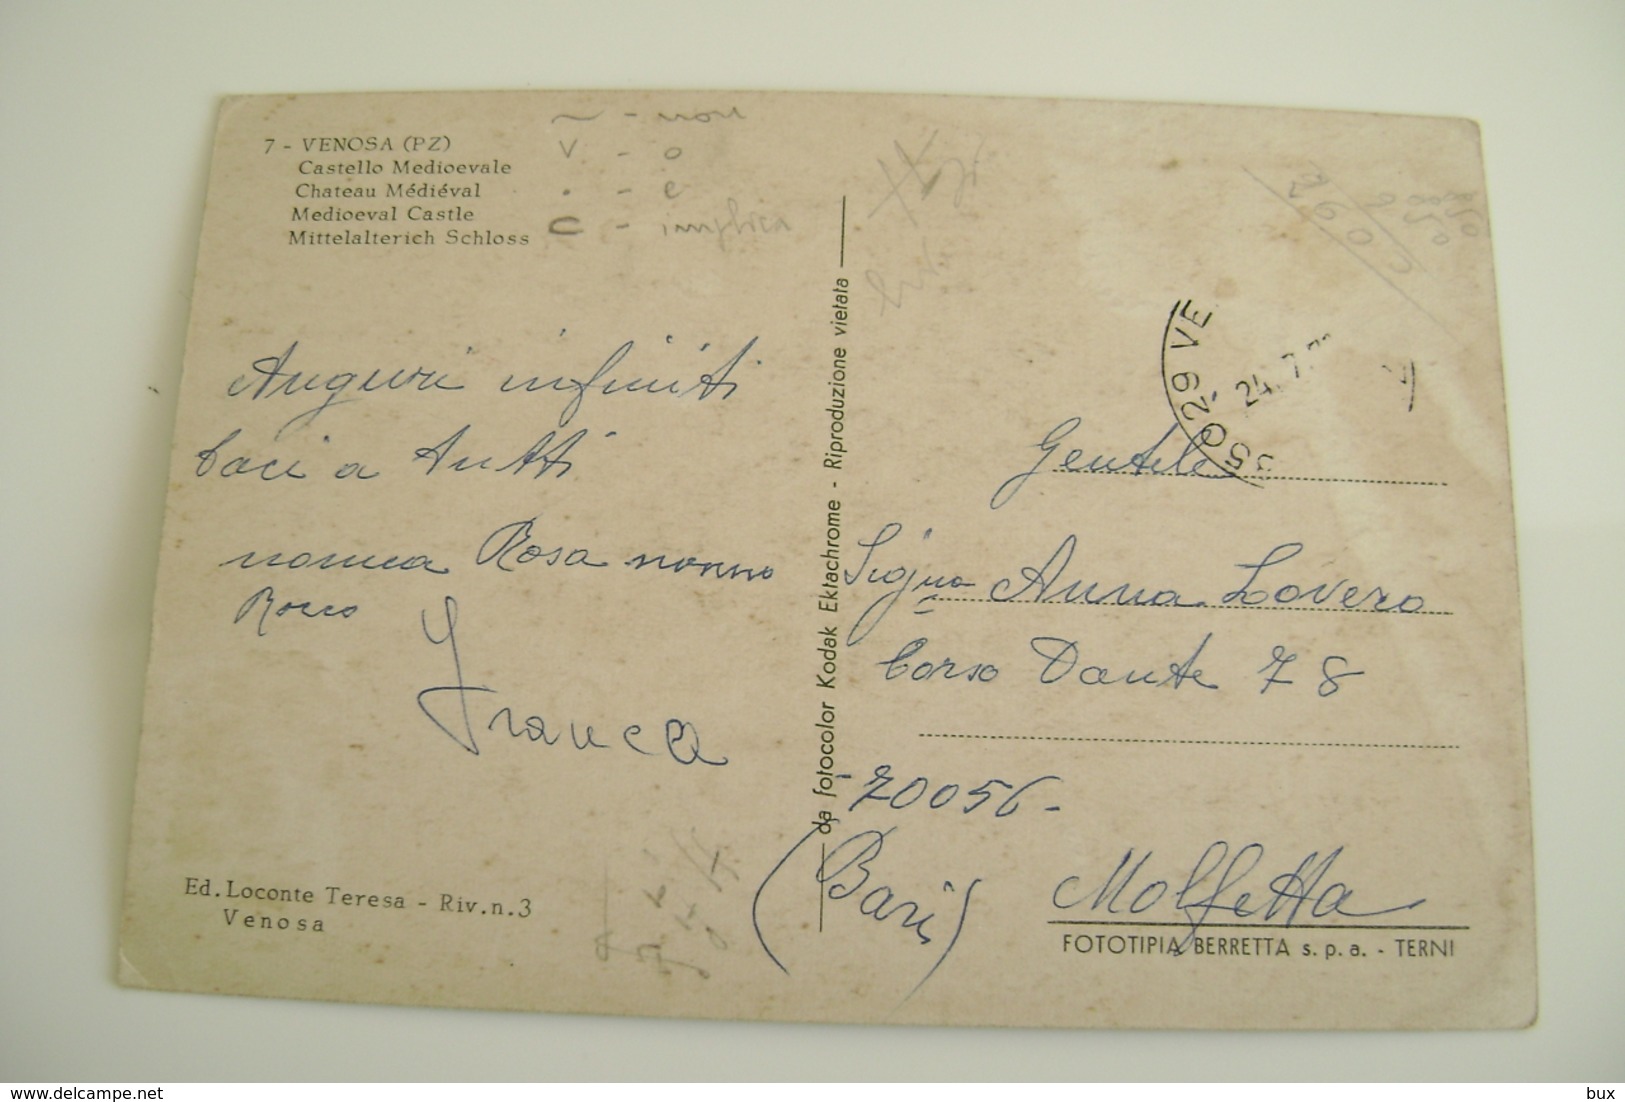 7 - VENOSA (PZ)
Castello Medioevale
Chateau Médiéval
Medioeval Castle
Mittelalterich Schloss
~ - non
v - o
. - e
C - implica
Auguri infiniti
baci a tutti
nonna Rosa nonno
Rocco
Franca
Ed. Loconte Teresa - Riv. n. 3
Venosa
da fotocolor Kodak Ektachrome - Riproduzione vietata
260
850
850
5029 VE
24. 7.
Gentile
Sig.na Anna Lovero
Corso Dante 78
-70056-
(Bari)
Molfetta
FOTOTIPIA BERRETTA s. p. a. - TERNI
www.delcampe.net
bux